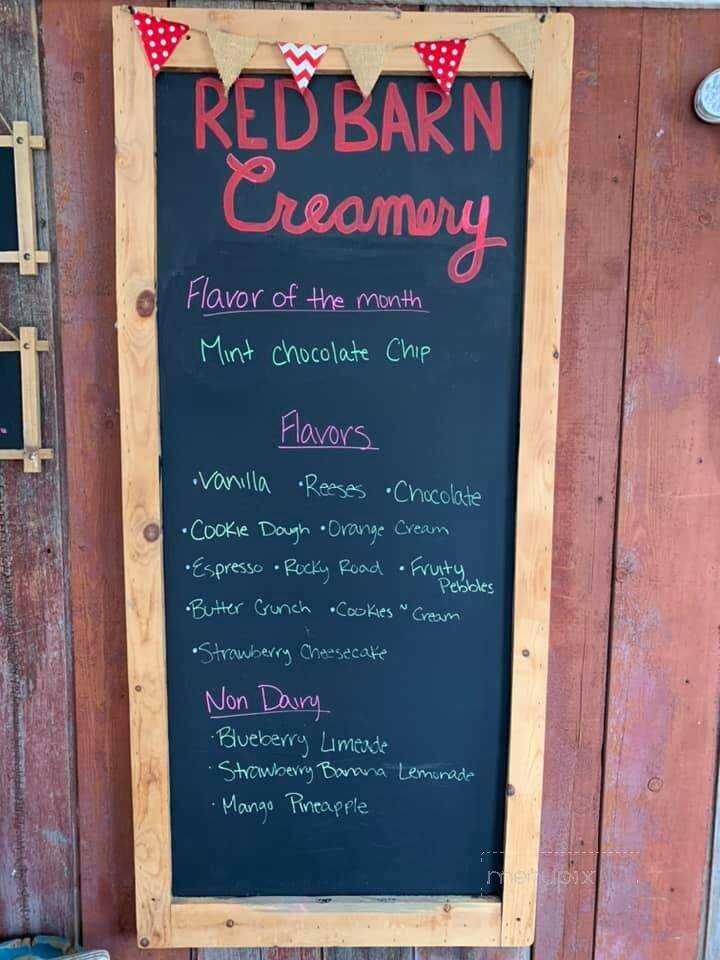 RED BARN
Creamery
Flavor of the month
Mint Chocolate Chip
Flavors
• Vanilla • Reeses • Chocolate
• Cookie Dough • Orange Cream
• Espresso • Rocky Road • Fruity
Pebbles
• Butter Crunch • Cookies ~ Cream
• Strawberry Cheesecake
Non Dairy
• Blueberry Limeade
• Strawberry Banana Lemonade
• Mango Pineapple
menupix